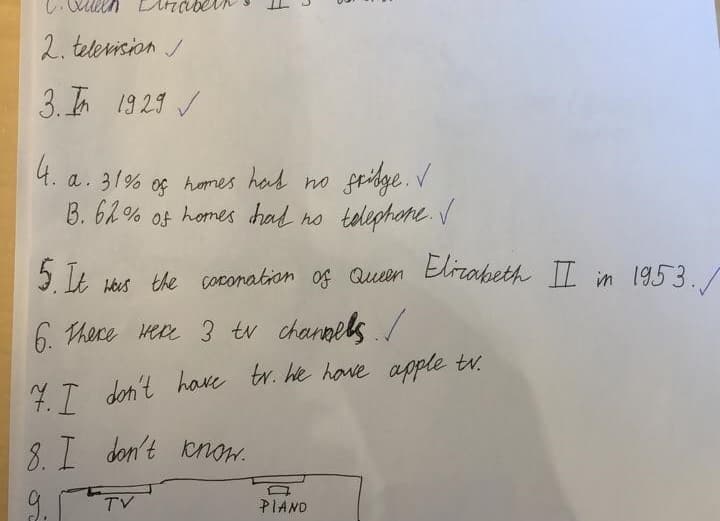 C. Queen Elizabeth's II's
2. television ✓
3. In 1929 ✓
4. a. 31% of homes had no fridge. ✓
B. 62% of homes had no telephone. ✓
5. It was the coronation of Queen Elizabeth II in 1953. ✓
6. There were 3 tv channels. ✓
7. I don't have tv. We have apple tv.
8. I don't know.
9.
TV PIANO